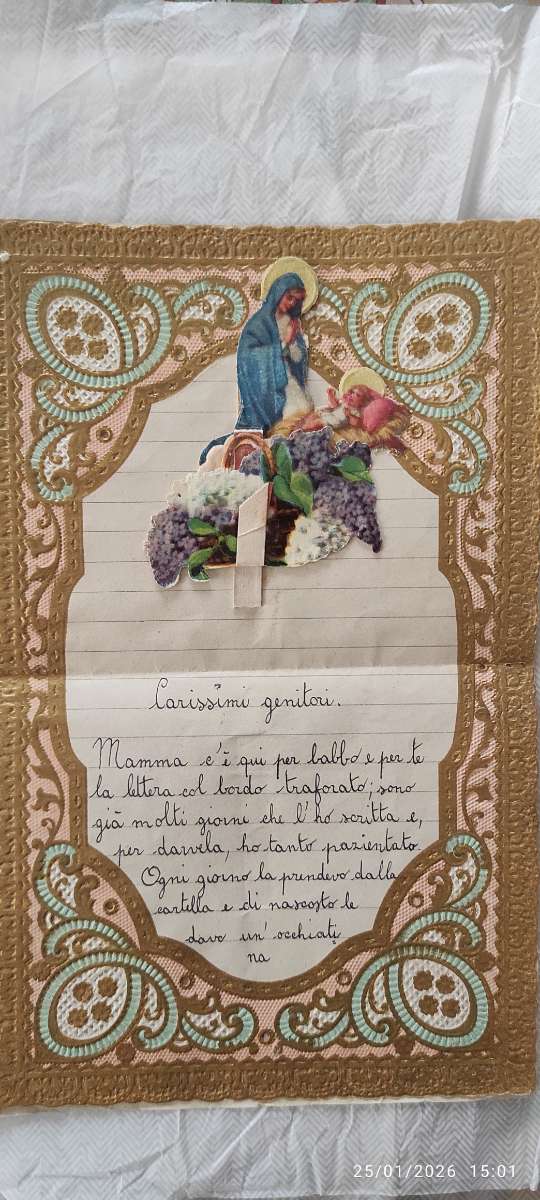 Carissimi genitori.
Mamma c'è qui per babbo e per te
la lettera col bordo traforato; sono
già molti giorni che l'ho scritta e,
per darvela, ho tanto pazientato.
Ogni giorno la prendevo dalla
cartella e di nascosto le
davo un' occhiati
na
25/01/2026 15:01